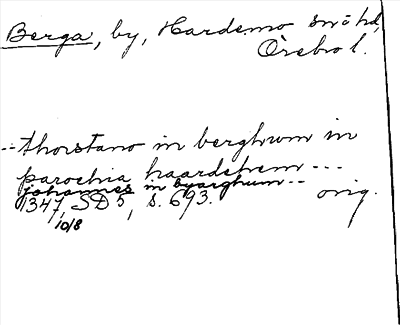 Berga, by, Hardemo snöhd,
Örebro l.
--thorstano in berghum in
parochia haardehem ---
johannes in byarghum --
1347, SD 5, s. 693. orig.
10/8